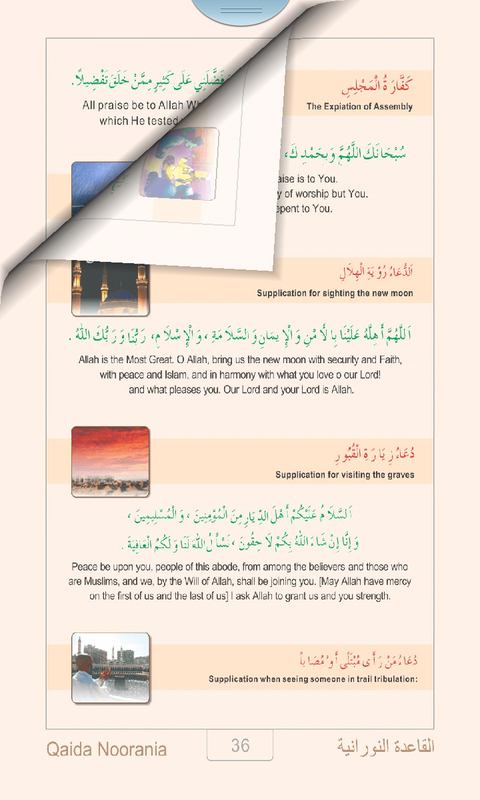 فَضَّلَنِي عَلَى كَثِيرٍ مِمَّنْ خَلَقَ تَفْضِيلًا.
All praise be to Allah
which He tested
كَفَّارَةُ الْمَجْلِسِ
The Expiation of Assembly
سُبْحَانَكَ اللَّهُمَّ وَبِحَمْدِكَ،
is to You.
of worship but You.
to You.
اَلدُّعَاءُ رُؤْيَةِ الْهِلَالِ
Supplication for sighting the new moon
اَللَّهُمَّ أَهِلَّهُ عَلَيْنَا بِالْأَمْنِ وَالْإِيمَانِ وَالسَّلَامَةِ، وَالْإِسْلَامِ، رَبُّنَا وَرَبُّكَ اللهُ.
Allah is the Most Great. O Allah, bring us the new moon with security and Faith,
with peace and Islam, and in harmony with what you love o our Lord!
and what pleases you. Our Lord and your Lord is Allah.
دُعَاءُ زِيَارَةِ الْقُبُورِ
Supplication for visiting the graves
اَلسَّلَامُ عَلَيْكُمْ أَهْلَ الدِّيَارِ مِنَ الْمُؤْمِنِينَ، وَالْمُسْلِمِينَ،
وَإِنَّا إِنْ شَاءَ اللهُ بِكُمْ لَاحِقُونَ، نَسْأَلُ اللهَ لَنَا وَلَكُمُ الْعَافِيَةَ.
Peace be upon you, people of this abode, from among the believers and those who
are Muslims, and we, by the Will of Allah, shall be joining you. [May Allah have mercy
on the first of us and the last of us] I ask Allah to grant us and you strength.
دُعَاءُ مَنْ رَأَى مُبْتَلًى أَوْ مُصَابًا
Supplication when seeing someone in trail tribulation:
Qaida Noorania
36
القاعدة النورانية